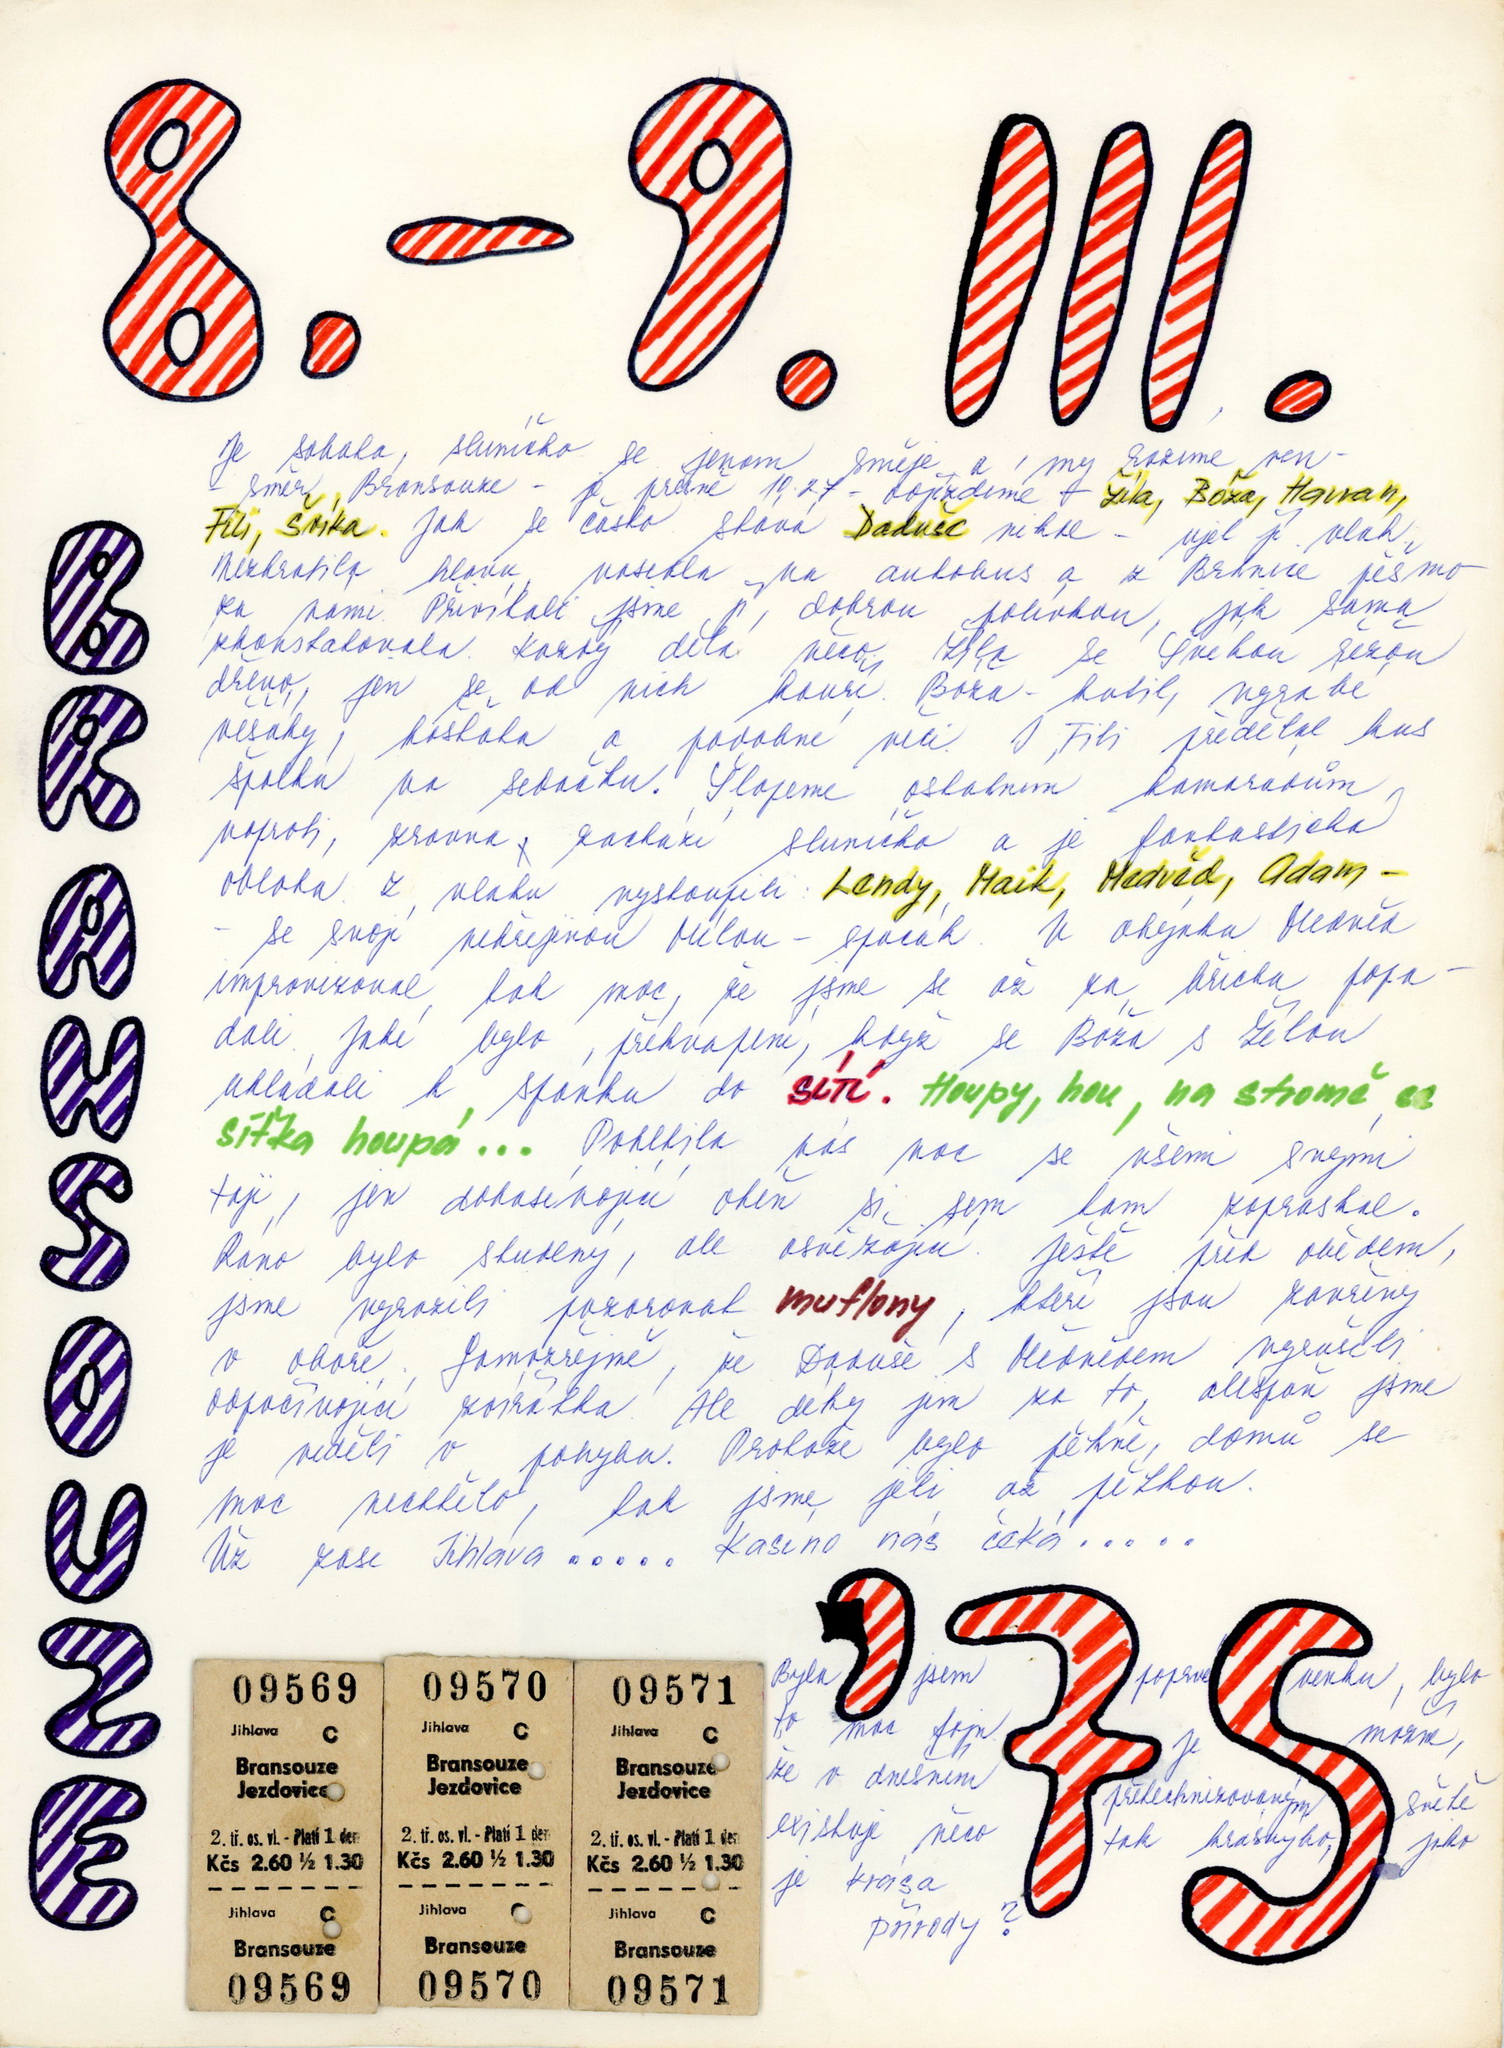 8. - 9. III.
BRANSOUZE
Je sobota, sluníčko se jenom směje a my razíme ven -
- směr Bransouze - je přesně 10.27 - odjíždíme + Žíla, Bóža, Harvan,
Fili, Šrika. Jak se často stává Daduše nikde - ujel jí vlak.
Neztratila hlavu, nasedla na autobus a z Brtnice pěšmo
za námi. Přivítali jsme ji dobrou polívkou, jak sama
zkonstatovala. Každý dělá něco, Žíla se řežou
dřevo, jen se od nich kouří. Bóža - kutil, vyrábí
věšáky, košťata a podobné věci. I Fili předělal kus
špalku na sedačku. Šlapeme ostatním kamarádům
naproti, zrovna zachází sluníčko a je fantastická
obloha. Z vlaku vystoupili: Lendy, Maik, Medvěd, Adam -
- se svojí nekřejivou Mílou - spacák. U ohýnku Medvěd
improvizoval tak moc, že jsme se až za břicha popa-
dali. Jaké bylo překvapení, když se Bóža s Žílou
ukládali k spánku do sítí. Houpy, hou, na stromě se
síťka houpá... Pohltila nás noc se všemi svými
taji, jen dohasínající oheň si sem tam zapraskal.
Ráno bylo studený, ale osvěžující. Ještě před obědem,
jsme vyrazili pozorovat muflony, kteří jsou zavřeny
v oboře. Samozřejmě, že Daduše s Medvědem vyrušili
odpočívající zvířátka. Ale díky jim za to, alespoň jsme
je viděli v pohybu. Protože bylo pěkně, domů se
moc nechtělo, tak jsme jeli až pětkou.
Už zase Jihlava ..... Kasino nás čeká .....
'75
Byla jsem poprvé venku, bylo
to moc fajn. Je možné,
že v dnešním přetechnizovaným světě
existuje něco tak krásnýho, jako
je krása
přírody?
09569 09570 09571
Jihlava C Jihlava C Jihlava C
Bransouze Bransouze Bransouze
Jezdovice Jezdovice Jezdovice
2. tř. os. vl. - Platí 1 den 2. tř. os. vl. - Platí 1 den 2. tř. os. vl. - Platí 1 den
Kčs 2.60 ½ 1.30 Kčs 2.60 ½ 1.30 Kčs 2.60 ½ 1.30
Jihlava C Jihlava Jihlava C
Bransouze Bransouze Bransouze
09569 09570 09571